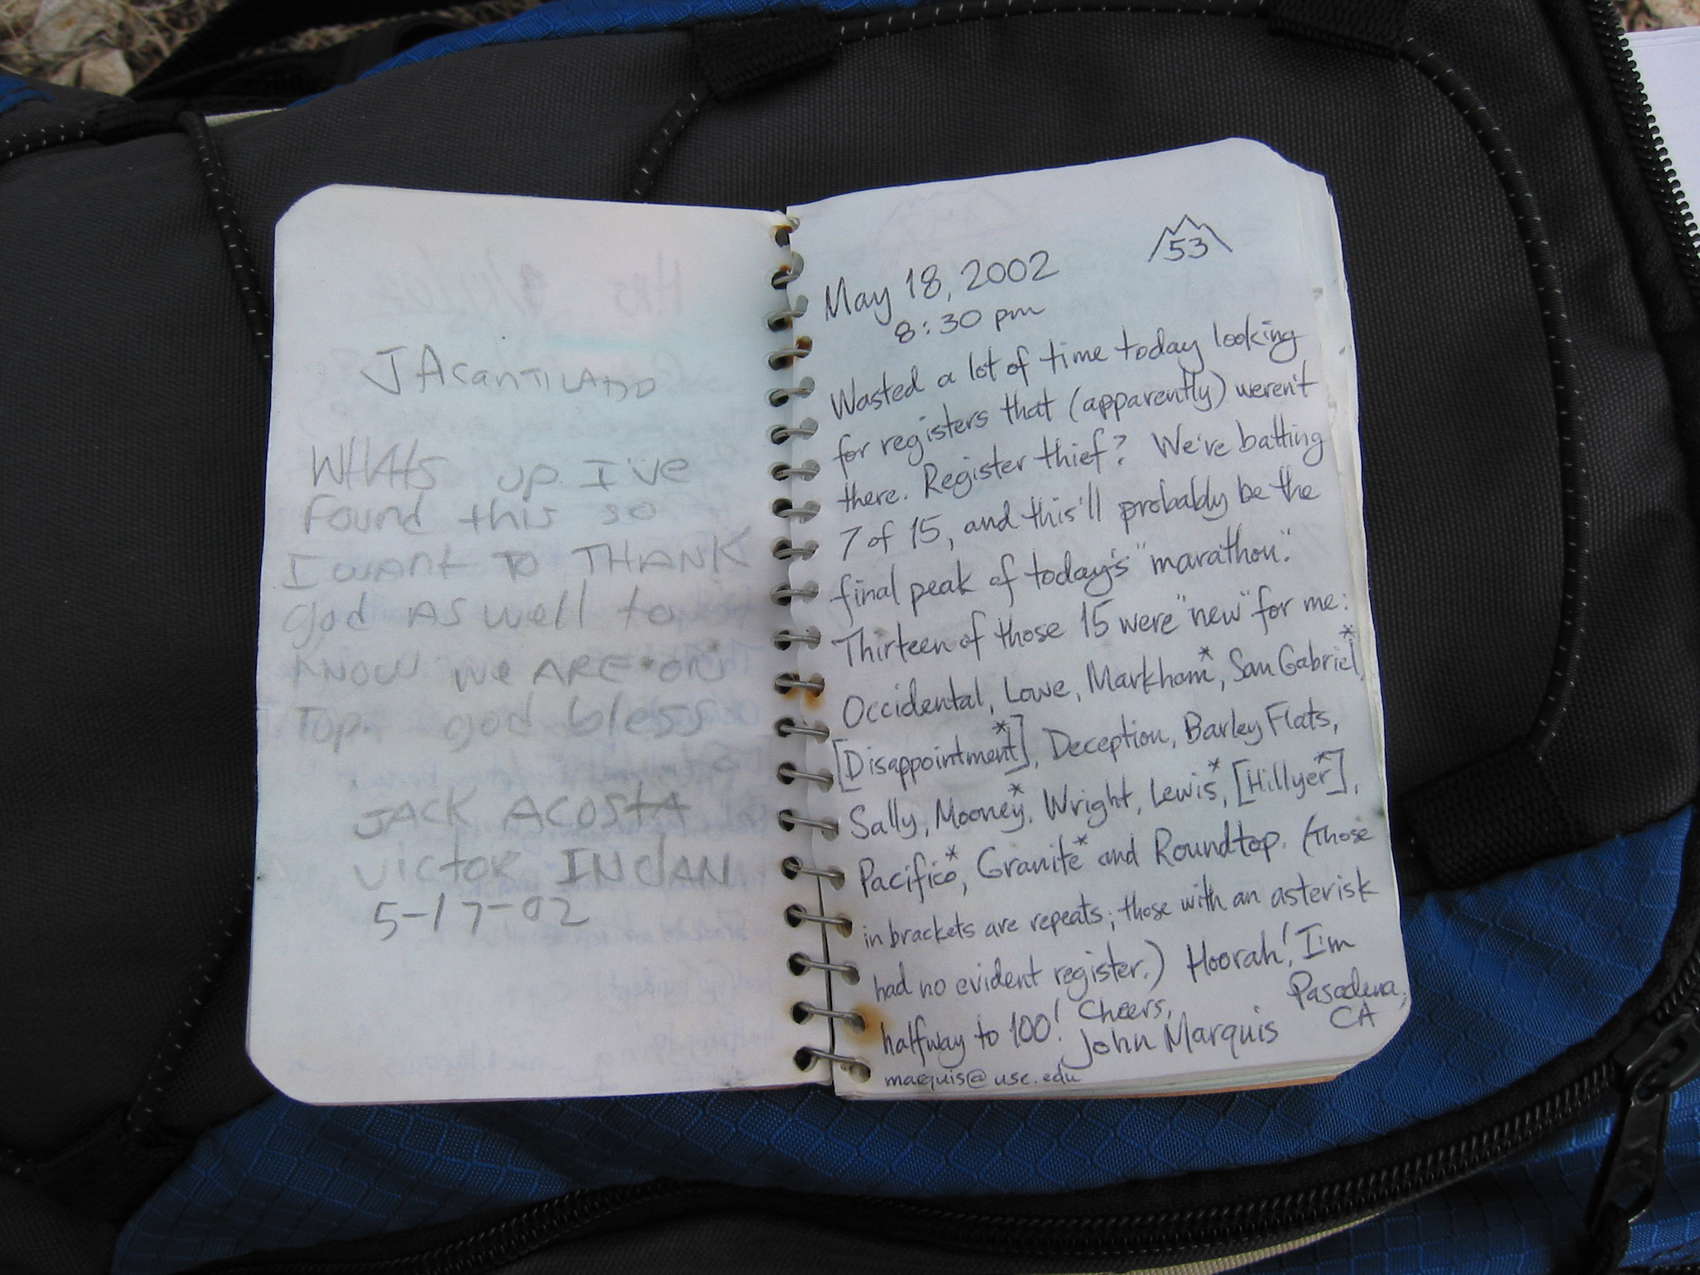 JAcantilado
WHAts up I've
found this so
I want to THANK
god AS well to
know we ARE on
Top. god bless
JACK ACOSTA
Victor INclAN
5-17-02
53
May 18, 2002
8:30 pm
Wasted a lot of time today looking
for registers that (apparently) weren't
there. Register thief? We're batting
7 of 15, and this'll probably be the
final peak of today's "marathon".
Thirteen of those 15 were "new" for me:
Occidental, Lowe, Markham*, San Gabriel*,
[Disappointment*], Deception, Barley Flats,
Sally, Mooney*, Wright, Lewis*, [Hillyer*],
Pacifico*, Granite* and Roundtop. (Those
in brackets are repeats; those with an asterisk
had no evident register.) Hoorah! I'm
halfway to 100! Cheers,
John Marquis
Pasadena,
CA
marquis@usc.edu